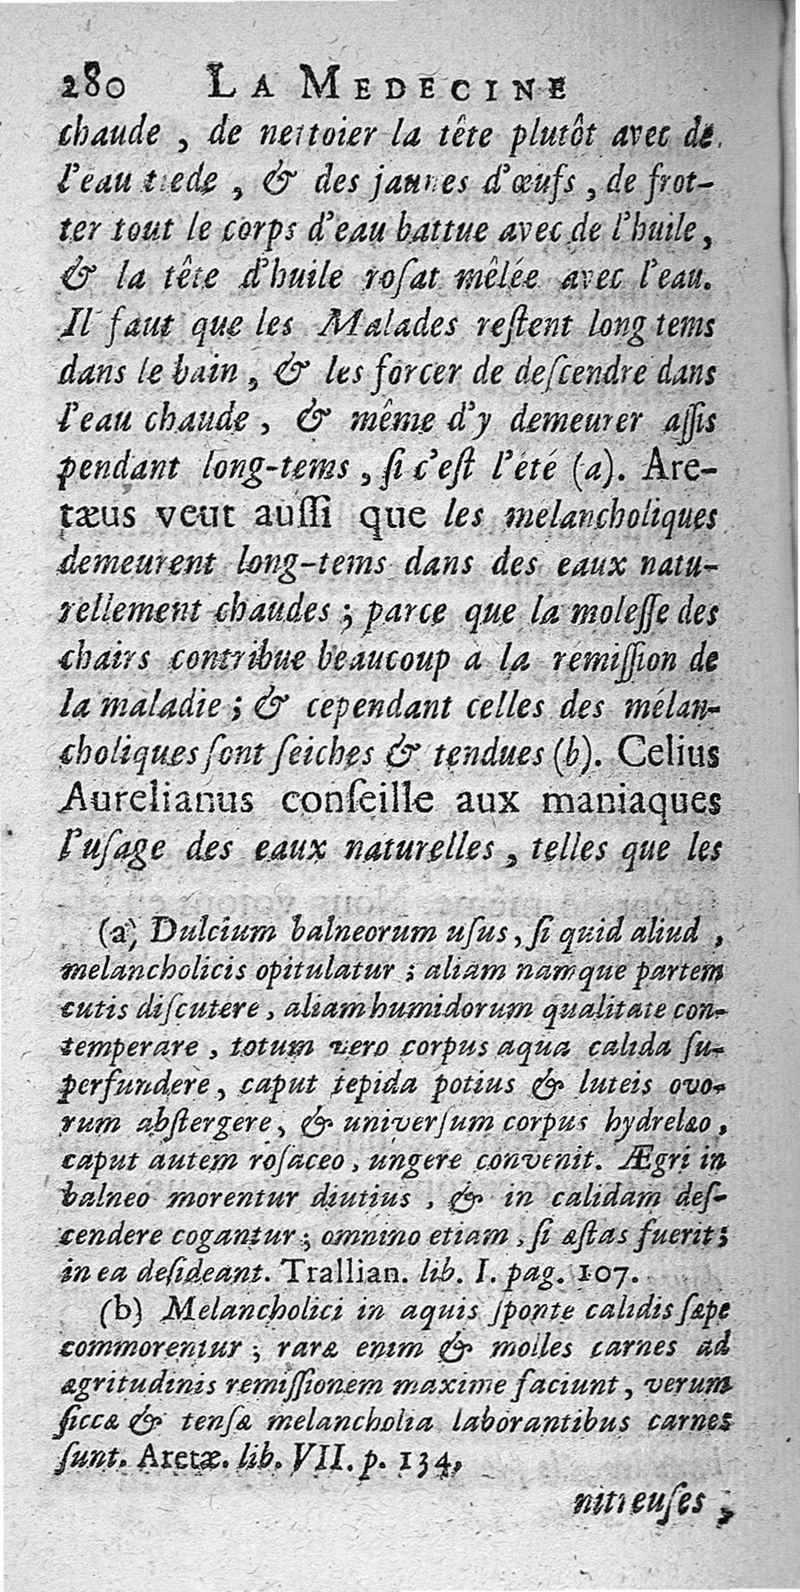 280 LA MEDECINE
chaude , de nettoier la tête plutôt avec de
l'eau tiede , & des jaunes d'œufs , de frot-
ter tout le corps d'eau battue avec de l'huile,
& la tête d'huile roſat mêlée avec l'eau.
Il faut que les Malades reſtent long tems
dans le bain , & les forcer de deſcendre dans
l'eau chaude , & même d'y demeurer aſſis
pendant long-tems , ſi c'eſt l'été (a). Are-
tæus veut auſſi que les melancholiques
demeurent long-tems dans des eaux natu-
rellement chaudes ; parce que la moleſſe des
chairs contribue beaucoup a la remiſſion de
la maladie ; & cependant celles des mélan-
choliques ſont ſeiches & tendues (b). Celius
Aurelianus conſeille aux maniaques
l'uſage des eaux naturelles , telles que les
(a) Dulcium balneorum uſus, ſi quid aliud ,
melancholicis opitulatur ; aliam namque partem
cutis diſcutere , aliam humidorum qualitate con-
temperare , totum vero corpus aqua calida ſu-
perfundere , caput tepida potius & luteis ovo-
rum abſtergere, & univerſum corpus hydrelæo ,
caput autem roſaceo , ungere convenit. Ægri in
balneo morentur diutius , & in calidam deſ-
cendere cogantur ; omnino etiam , ſi æſtas fuerit ;
in ea deſideant. Trallian. lib. I. pag. 107.
(b) Melancholici in aquis ſponte calidis ſæpe
commorentur ; raræ enim & molles carnes ad
ægritudinis remiſſionem maxime faciunt, verum
ſiccæ & tenſæ melancholia laborantibus carnes
ſunt. Aretæ. lib. VII. p. 134,
nitreuſes ,